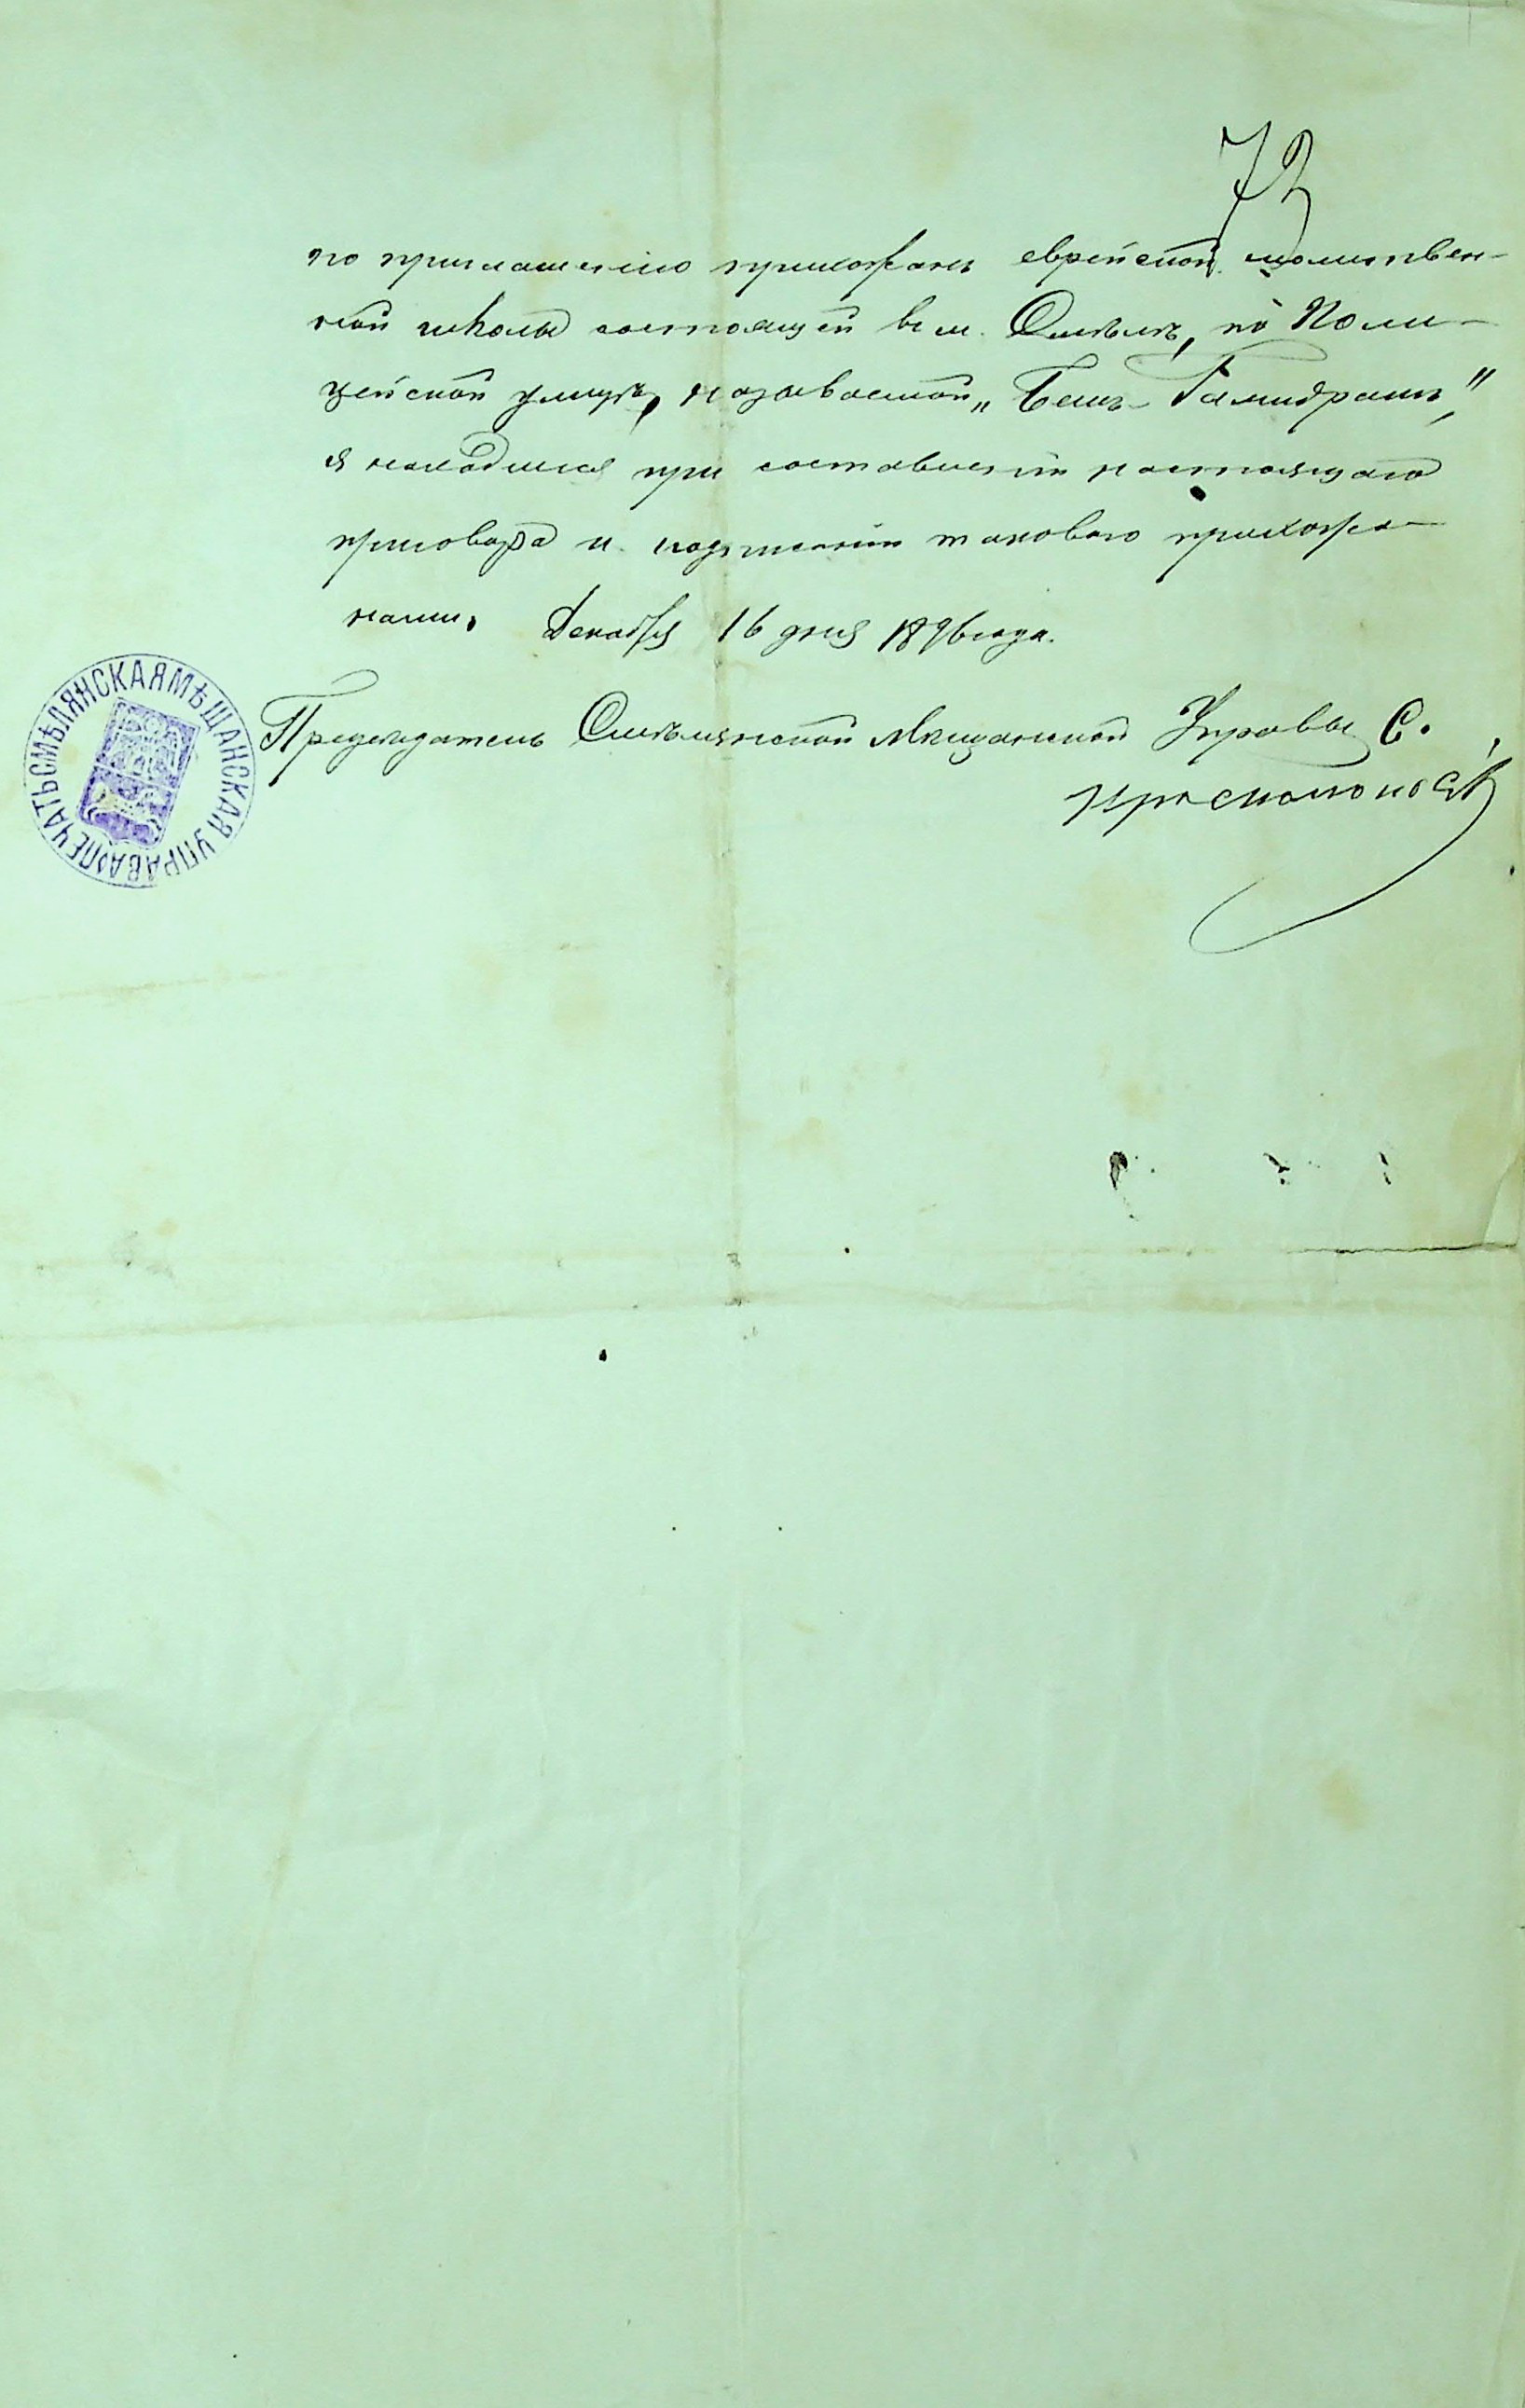 72
по приглашенію прихожанъ еврейской молитвен-
ной школы состоящей въ м. Смѣлѣ, по Поли-
цейской улицѣ, называемой „Бешъ-Гамидрашъ"
я находился при составленіи настоящаго
приговора и подписаніи таковаго прихожа-
нами. Декабря 16 дня 1896 года.
Предсѣдатель Смѣлянской Мѣщанской Управы С.
ПЕЧАТЬ СМѢЛЯНСКАЯ МѢЩАНСКАЯ УПРАВА